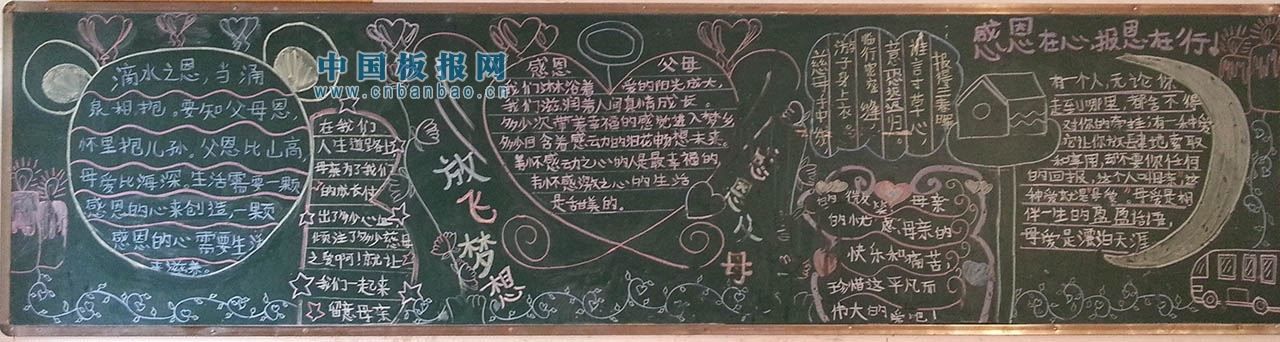 中国板报网
www.cnbanbao.cn
滴水之恩，当涌
泉相抱。要知父母恩
怀里抱儿孙。父恩比山高，
母爱比海深 生活需要一颗
感恩的心来创造，一颗
感恩的心需要生活
来滋养。
在我们
人生道路上
母亲为了我们
的成长付
出了多少心血
倾注了多少慈母
之爱啊！就让
我们一起来
留意母亲
放飞梦想
感恩 父母
我们沐浴着 爱的阳光成大，
我们滋润着人间真情成长。
多少次带着幸福的感觉进入梦乡
多少回含着感动的泪花畅想未来。
着怀感动之心的人是最幸福的
怀感激之心的生活
是甜美的。
感恩父母
慈母手中线
游子身上衣
临行密密缝
意恐迟迟归
谁言寸草心
报得三春晖
感恩在心，报恩在行！
母亲
母亲的
快乐和痛苦，
珍惜这平凡而
伟大的爱吧！
有一个人，无论你
走到哪里，都舍不得
对你的牵挂；有一种爱
它让你放肆地索取
和享用，却不要你任何
的回报，这个人叫母亲 这
种爱就是母爱。母爱是相
伴一生的
母爱是漂泊天涯